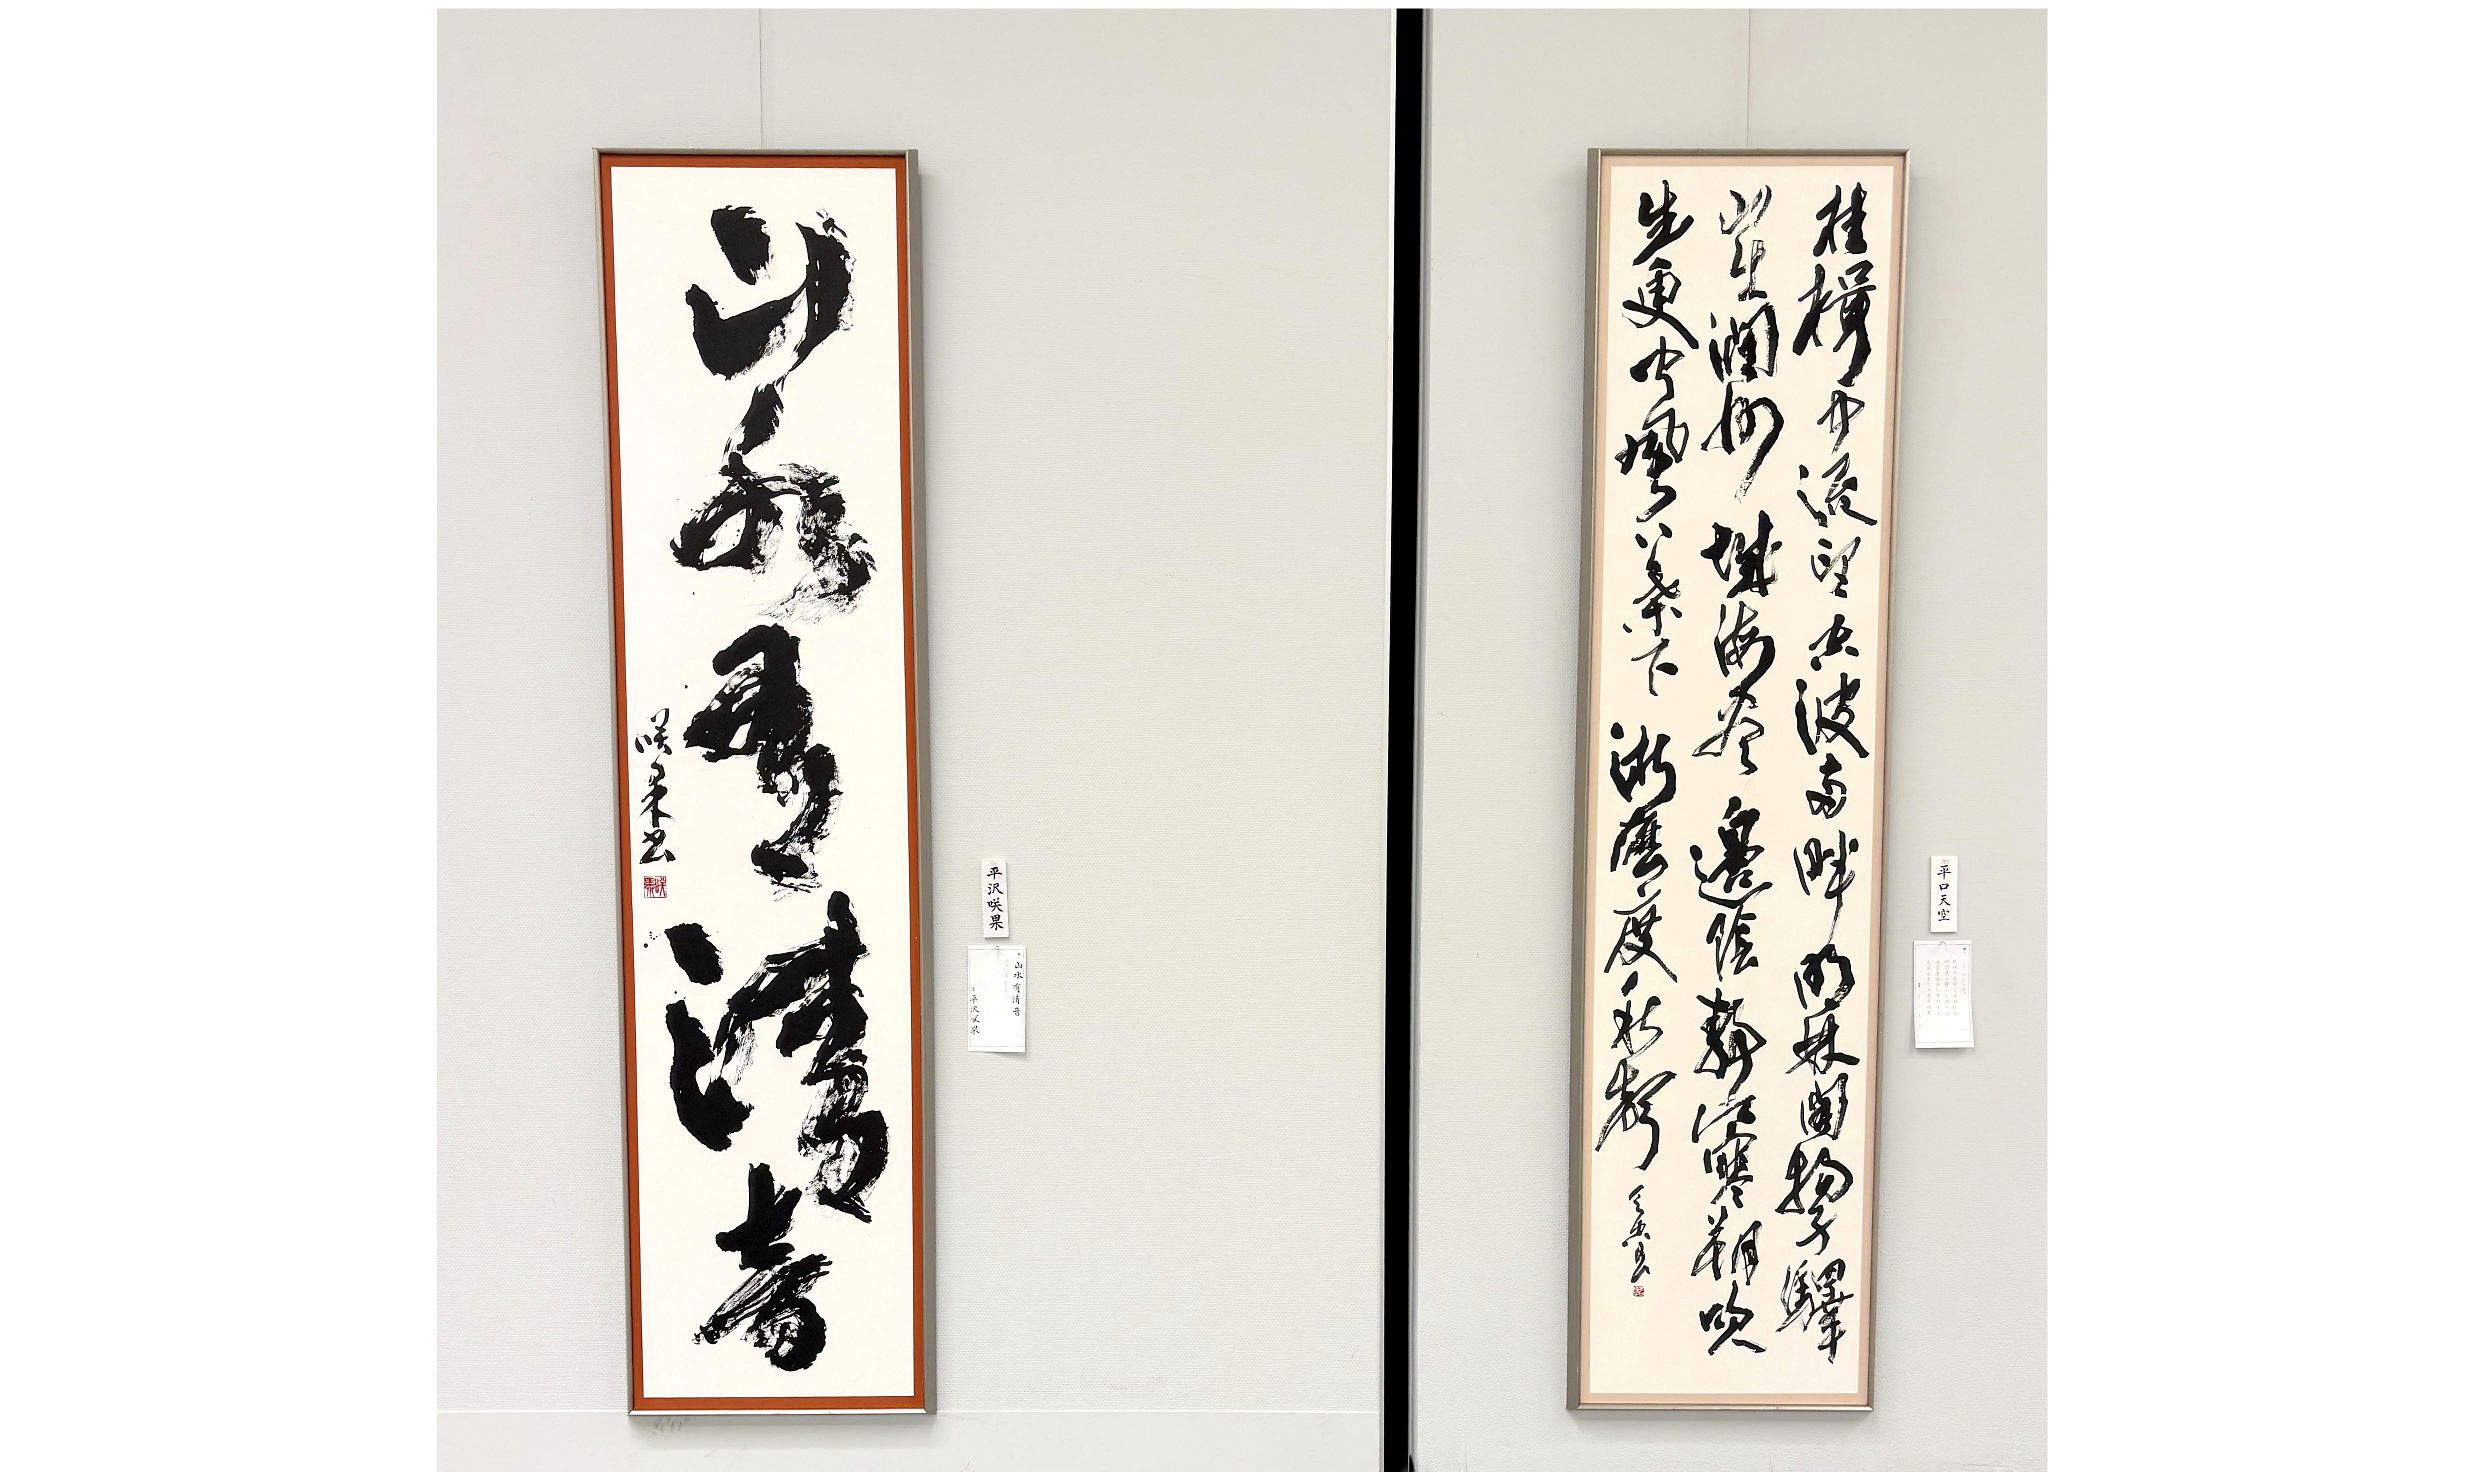 桂楫中流望空波兩畔明林開揚子驛
山出潤州城海盡邊陰靜江寒朔吹
生更聞楓葉下淅瀝度秋聲
天空書
平口天空
山水有清音
咲果書
咲果
平沢咲果
山水有清音
平沢咲果